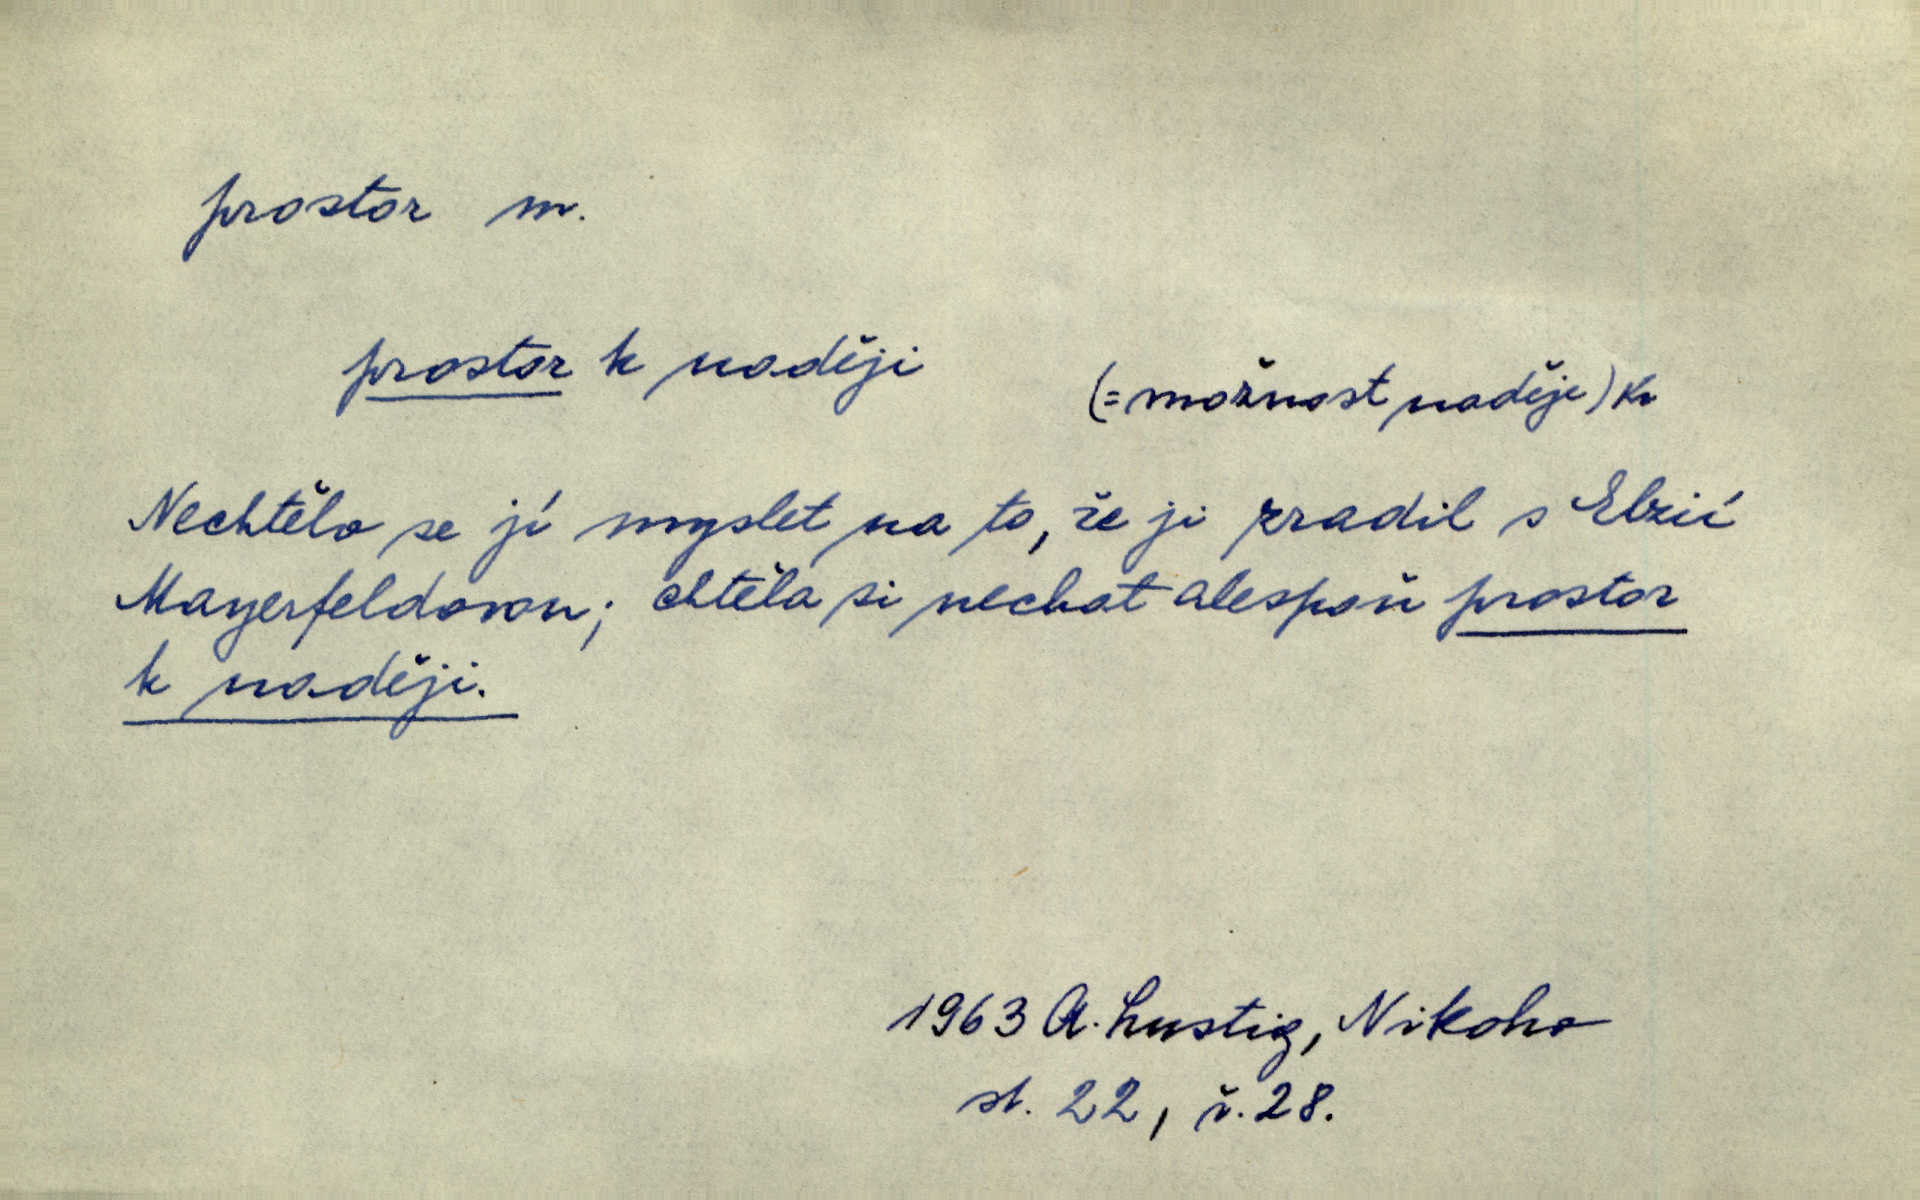 prostor m.
prostor k naději
(= možnost naděje) Kn
Nechtělo se jí myslet na to, že ji zradil s Elzií
Mayerfeldovou; chtěla si nechat alespoň prostor
k naději.
1963 A. Lustig, Nikoho
st. 22, ř. 28.